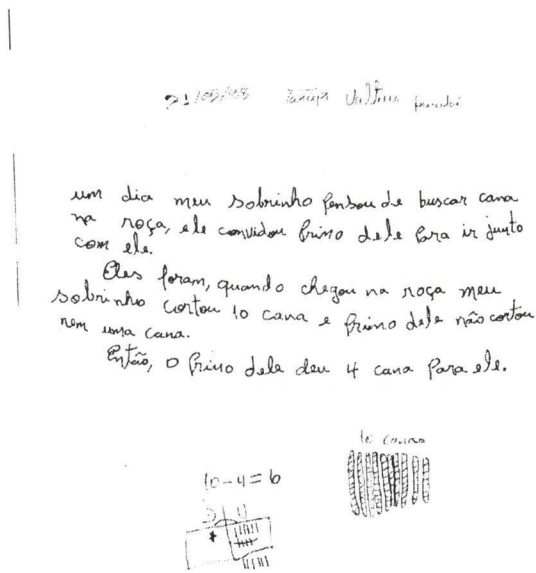 21/05/98
um dia meu sobrinho pensou de buscar cana
na roça, ele convidou primo dele para ir junto
com ele.
Eles foram, quando chegou na roça meu
sobrinho cortou 10 cana e primo dele não cortou
nem uma cana.
Então, o primo dele deu 4 cana para ele.
10 canas
10-4=6